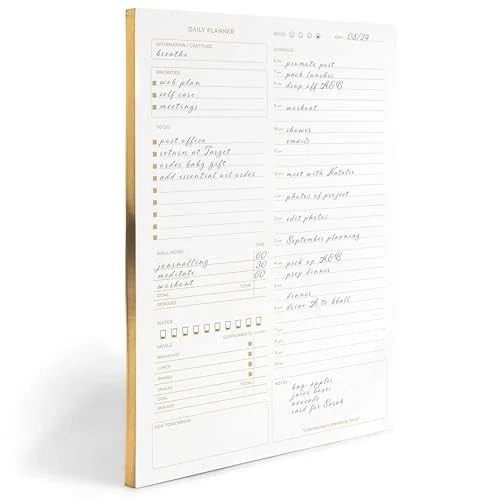 DAILY PLANNER
MOOD
DATE 08/24
AFFIRMATION / GRATITUDE
breathe
PRIORITIES
web plan
self care
meetings
TO DO
post office
return at Target
order baby gift
add essential oil order
WELL-BEING TIME
journalling 60
meditate 30
workout 60
GOAL TOTAL
REWARD
WATER
SUPPLEMENTS
MEALS
BREAKFAST
LUNCH
DINNER
SNACKS
GOAL TOTAL
REWARD
FOR TOMORROW
SCHEDULE
promote post
pack lunches
drop off A&B
workout
shower
emails
meet with Natalie
photos of project
edit photos
September planning
pick up A&B
prep dinner
dinner
drive A to bball
NOTES
buy: apples
juice boxes
avocado
card for Sarah